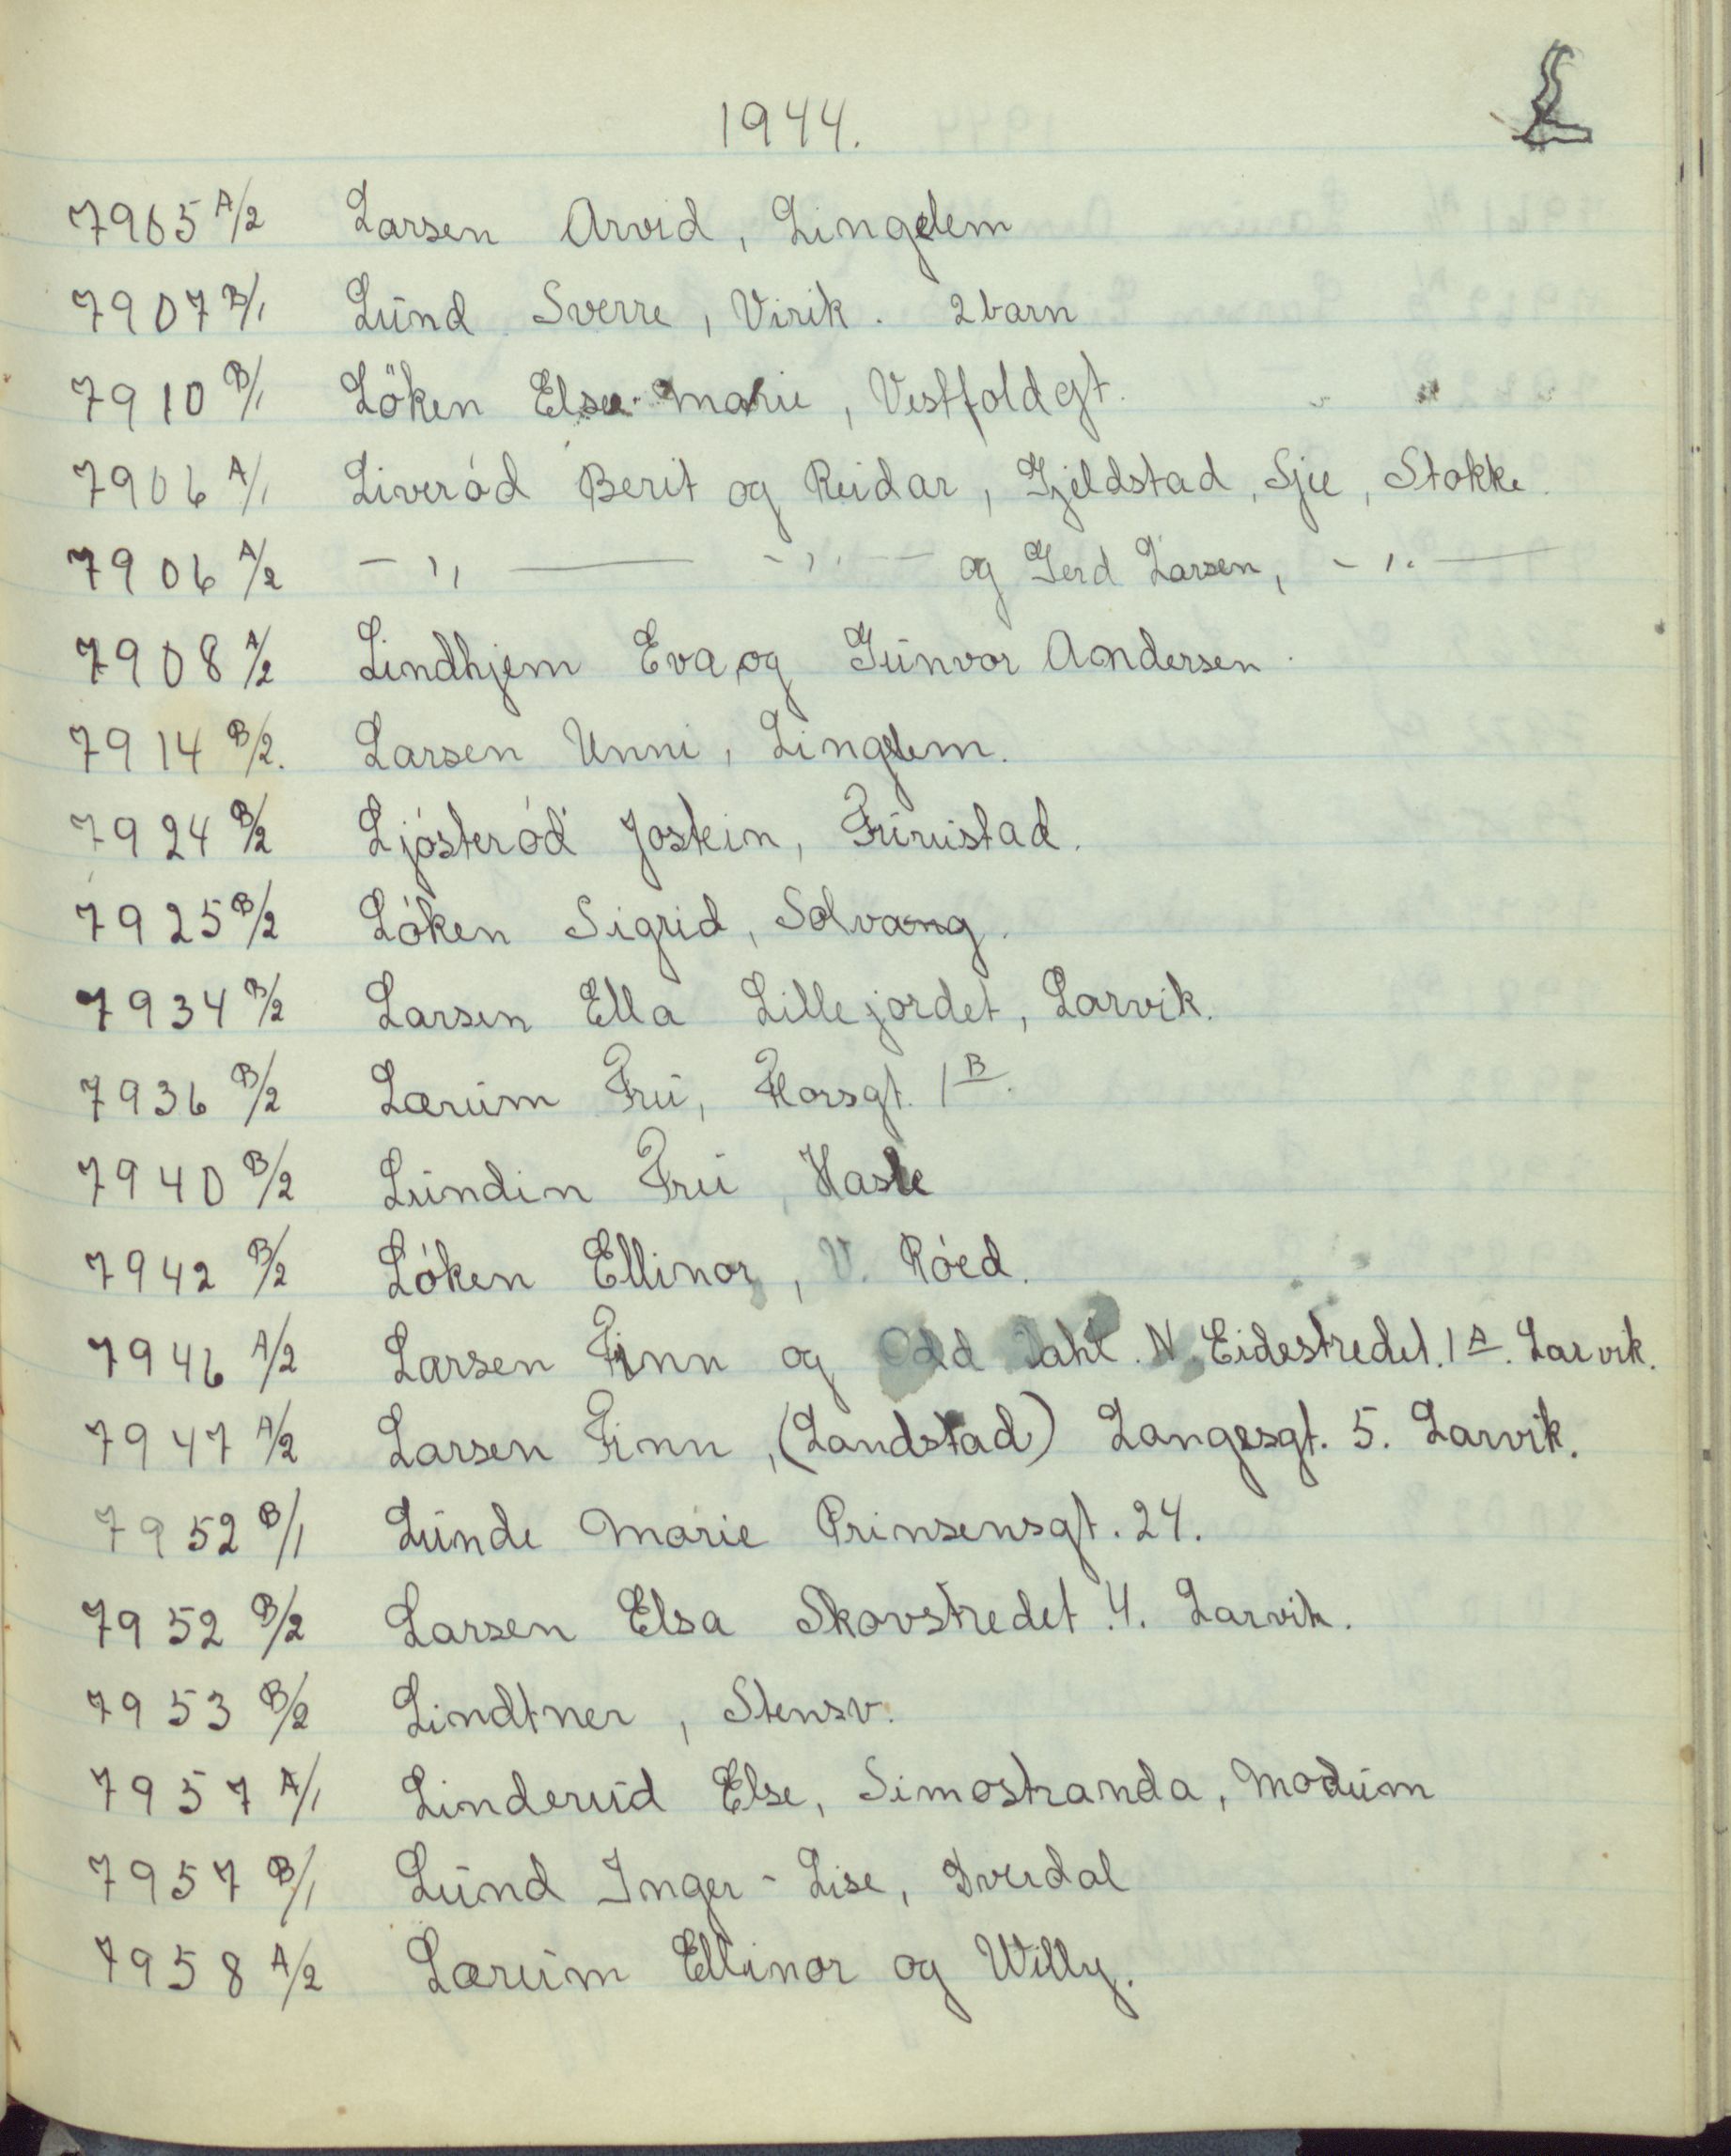 L
1944.
7905 A/2 Larsen Arvid, Lingelem
7907 B/1 Lund Sverre, Virik. 2 barn
7910 B/1 Löken Else-Marie, Vestfoldgt.
7906 A/1 Liveród Berit og Reidar, Gjeldstad, Sje, Stokke.
7906 A/2 - ,, — - ,, — og Gerd Larsen, - ,, —
7908 A/2 Lindhjem Eva og Gunvor Aandersen.
7914 B/2. Larsen Unni, Lingelem.
7924 B/2 Ljósteród Jostein, Furustad.
7925 B/2 Lóken Sigrid, Solvang.
7934 B/2 Larsen Ella Lillejordet, Larvik.
7936 B/2 Lærum Fru, Horsgt. 1 B.
7940 B/2 Lundin Fru, Hasle
7942 B/2 Lóken Ellinor, V. Róed.
7946 A/2 Larsen Finn og Odd Dahl. N. Eidestredet. 1 A. Larvik.
7947 A/2 Larsen Finn, (Landstad) Langesgt. 5. Larvik.
7952 B/1 Lunde Marie Prinsensgt. 24.
7952 B/2 Larsen Elsa Skovstredet 4. Larvik.
7953 B/2 Lindtner, Stensv.
7957 A/1 Linderud Else, Simostranda, Modum
7957 B/1 Lund Inger-Lise, Dverdal
7958 A/2 Lærum Ellinor og Willy.